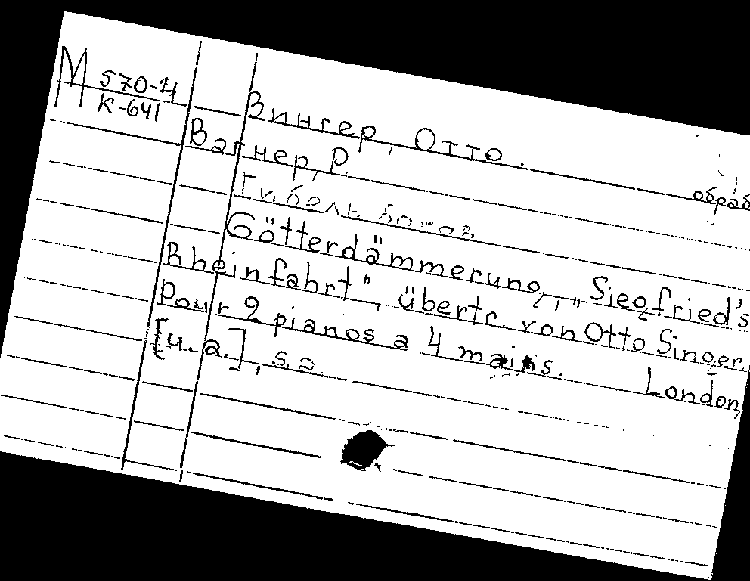 М 570-4
К-641
Зингер, Отто.
обраб
Вагнер, Р.
Гибель богов
Götterdämmerung, „Siegfried's
Rheinfahrt", übertr. von Otto Singer.
Pour 2 pianos a 4 mains. London,
[u. a.], s.a.